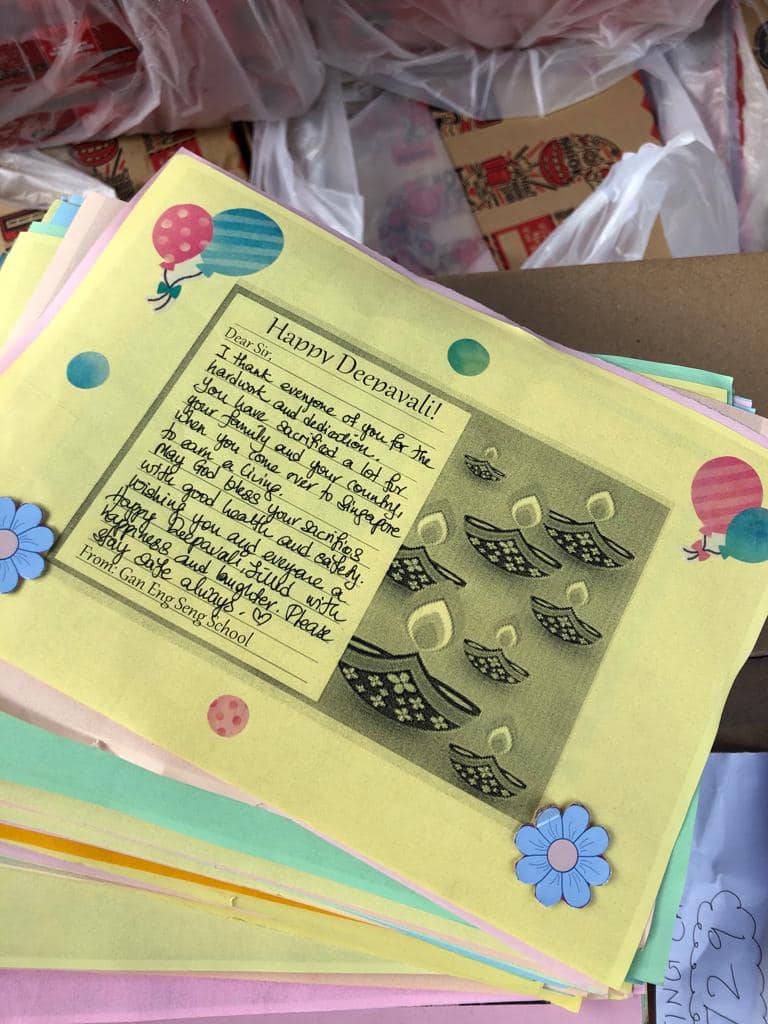 Happy Deepavali!
Dear Sir,
I thank everyone of you for the
hardwork and dedication.
You have sacrificed a lot for
your family and your country,
when you come over to Singapore
to earn a living.
May God bless your sacrifies
with good health and safety.
Wishing you and everyone a
Happy Deepavali filled with
happiness and laughter. Please
stay safe always. ♡
From: Gan Eng Seng School
729